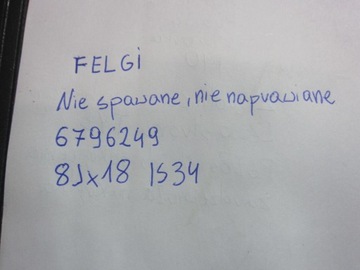 FELGI
Nie spawane, nie naprawiane
6796249
8Jx18 IS34